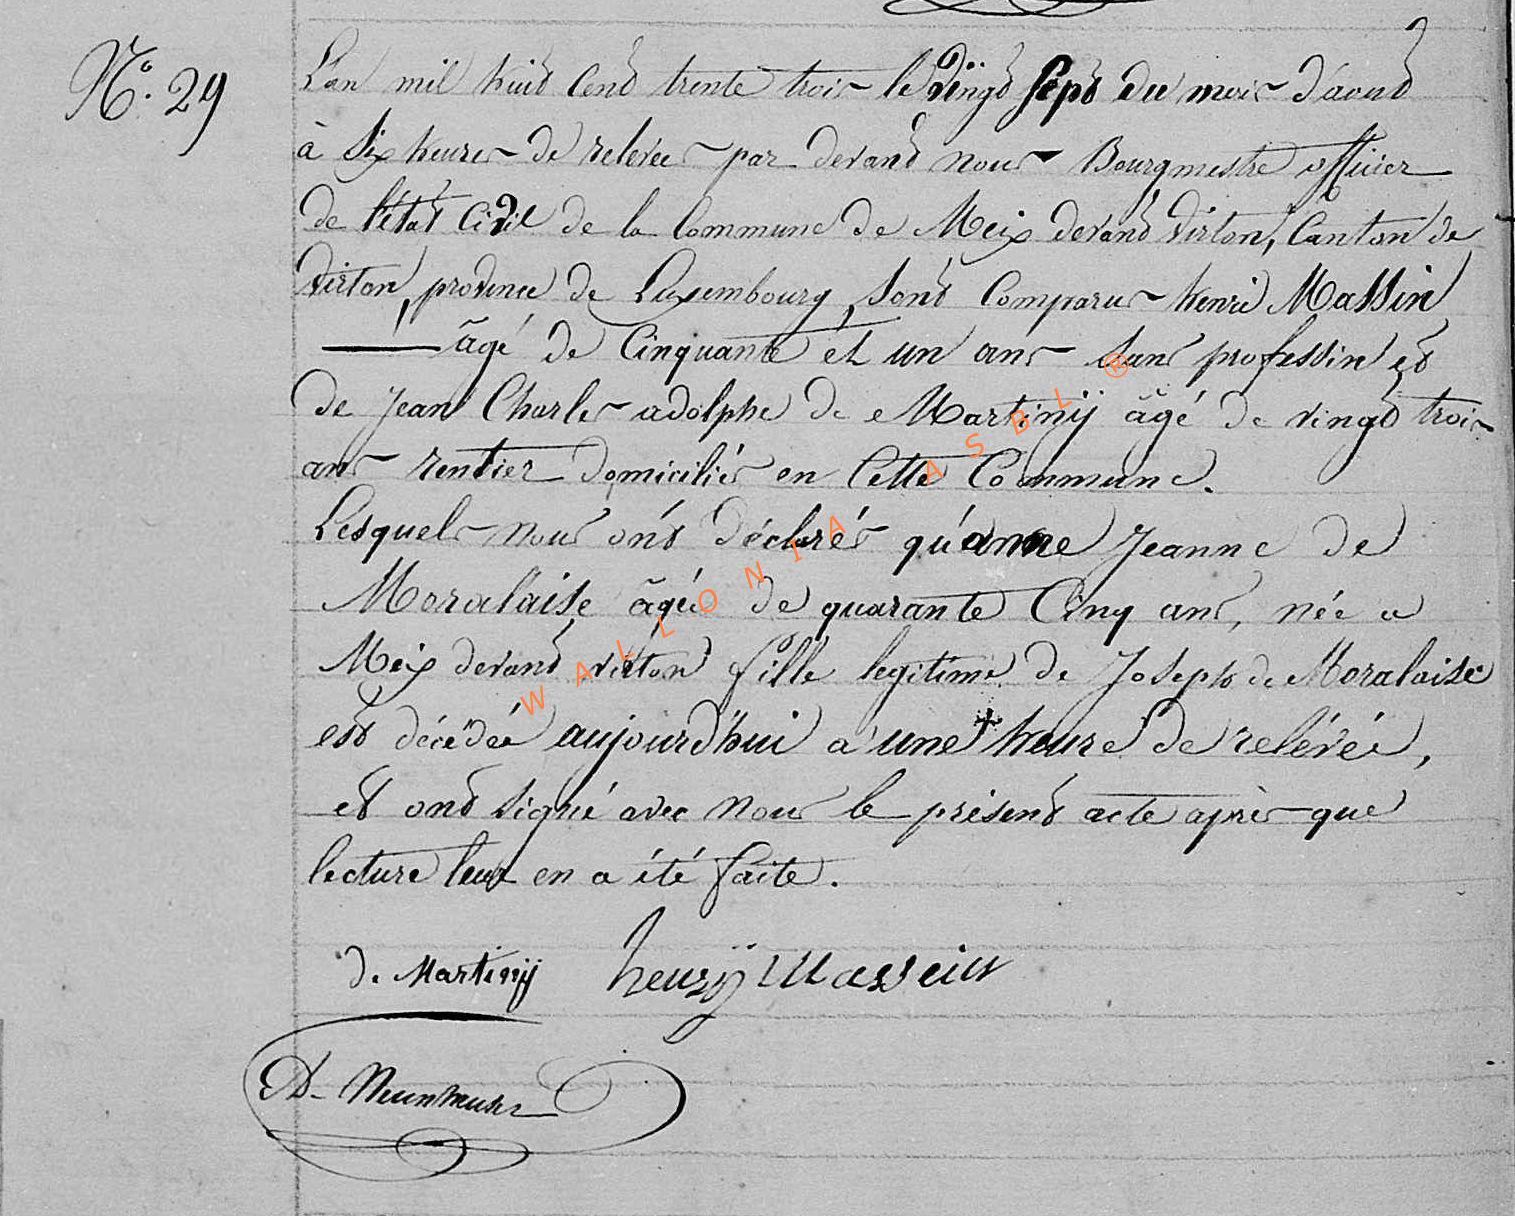 N.° 29
L'an mil huit Cent trente trois le vingt sept du mois d'aout
à six heures de relevée par devant nous Bourgmestre officier
de l'état Civil de la Commune de Meix devant Virton, Canton de
Virton, province de Luxembourg, sont Comparus henri Massin
âgé de Cinquante et un ans sans profession et
de Jean Charles adolphe de Martinÿ âgé de vingt trois
ans rentier domiciliés en Cette Commune.
Lesquels nous ont déclarés qu'anne Jeanne de
Moralaise âgée de quarante Cinq ans, née a
Meix devant virton fille legitime de Joseph de Moralaise
est décédée aujourd'hui a une heure de relévée,
et ont signé avec nous le présent acte après que
lecture leur en a été faite.
de Martinÿ henrÿ Massin
WALLONIA ASBL ®